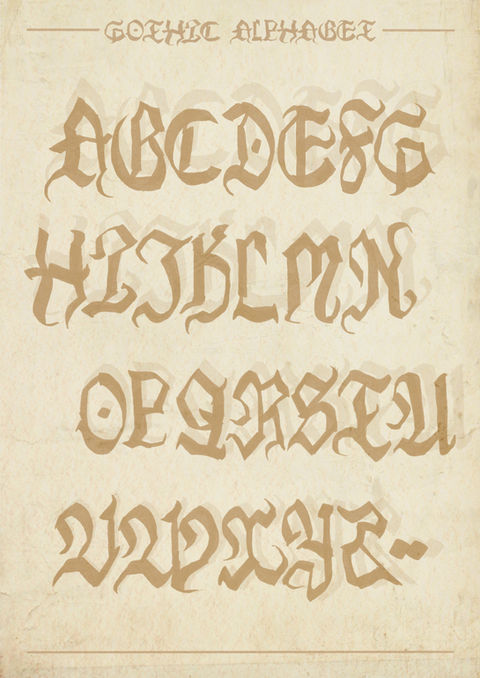 GOTHIC ALPHABET
ABCDEFG
HIJKLMN
OPQRSTU
VWXYZ..